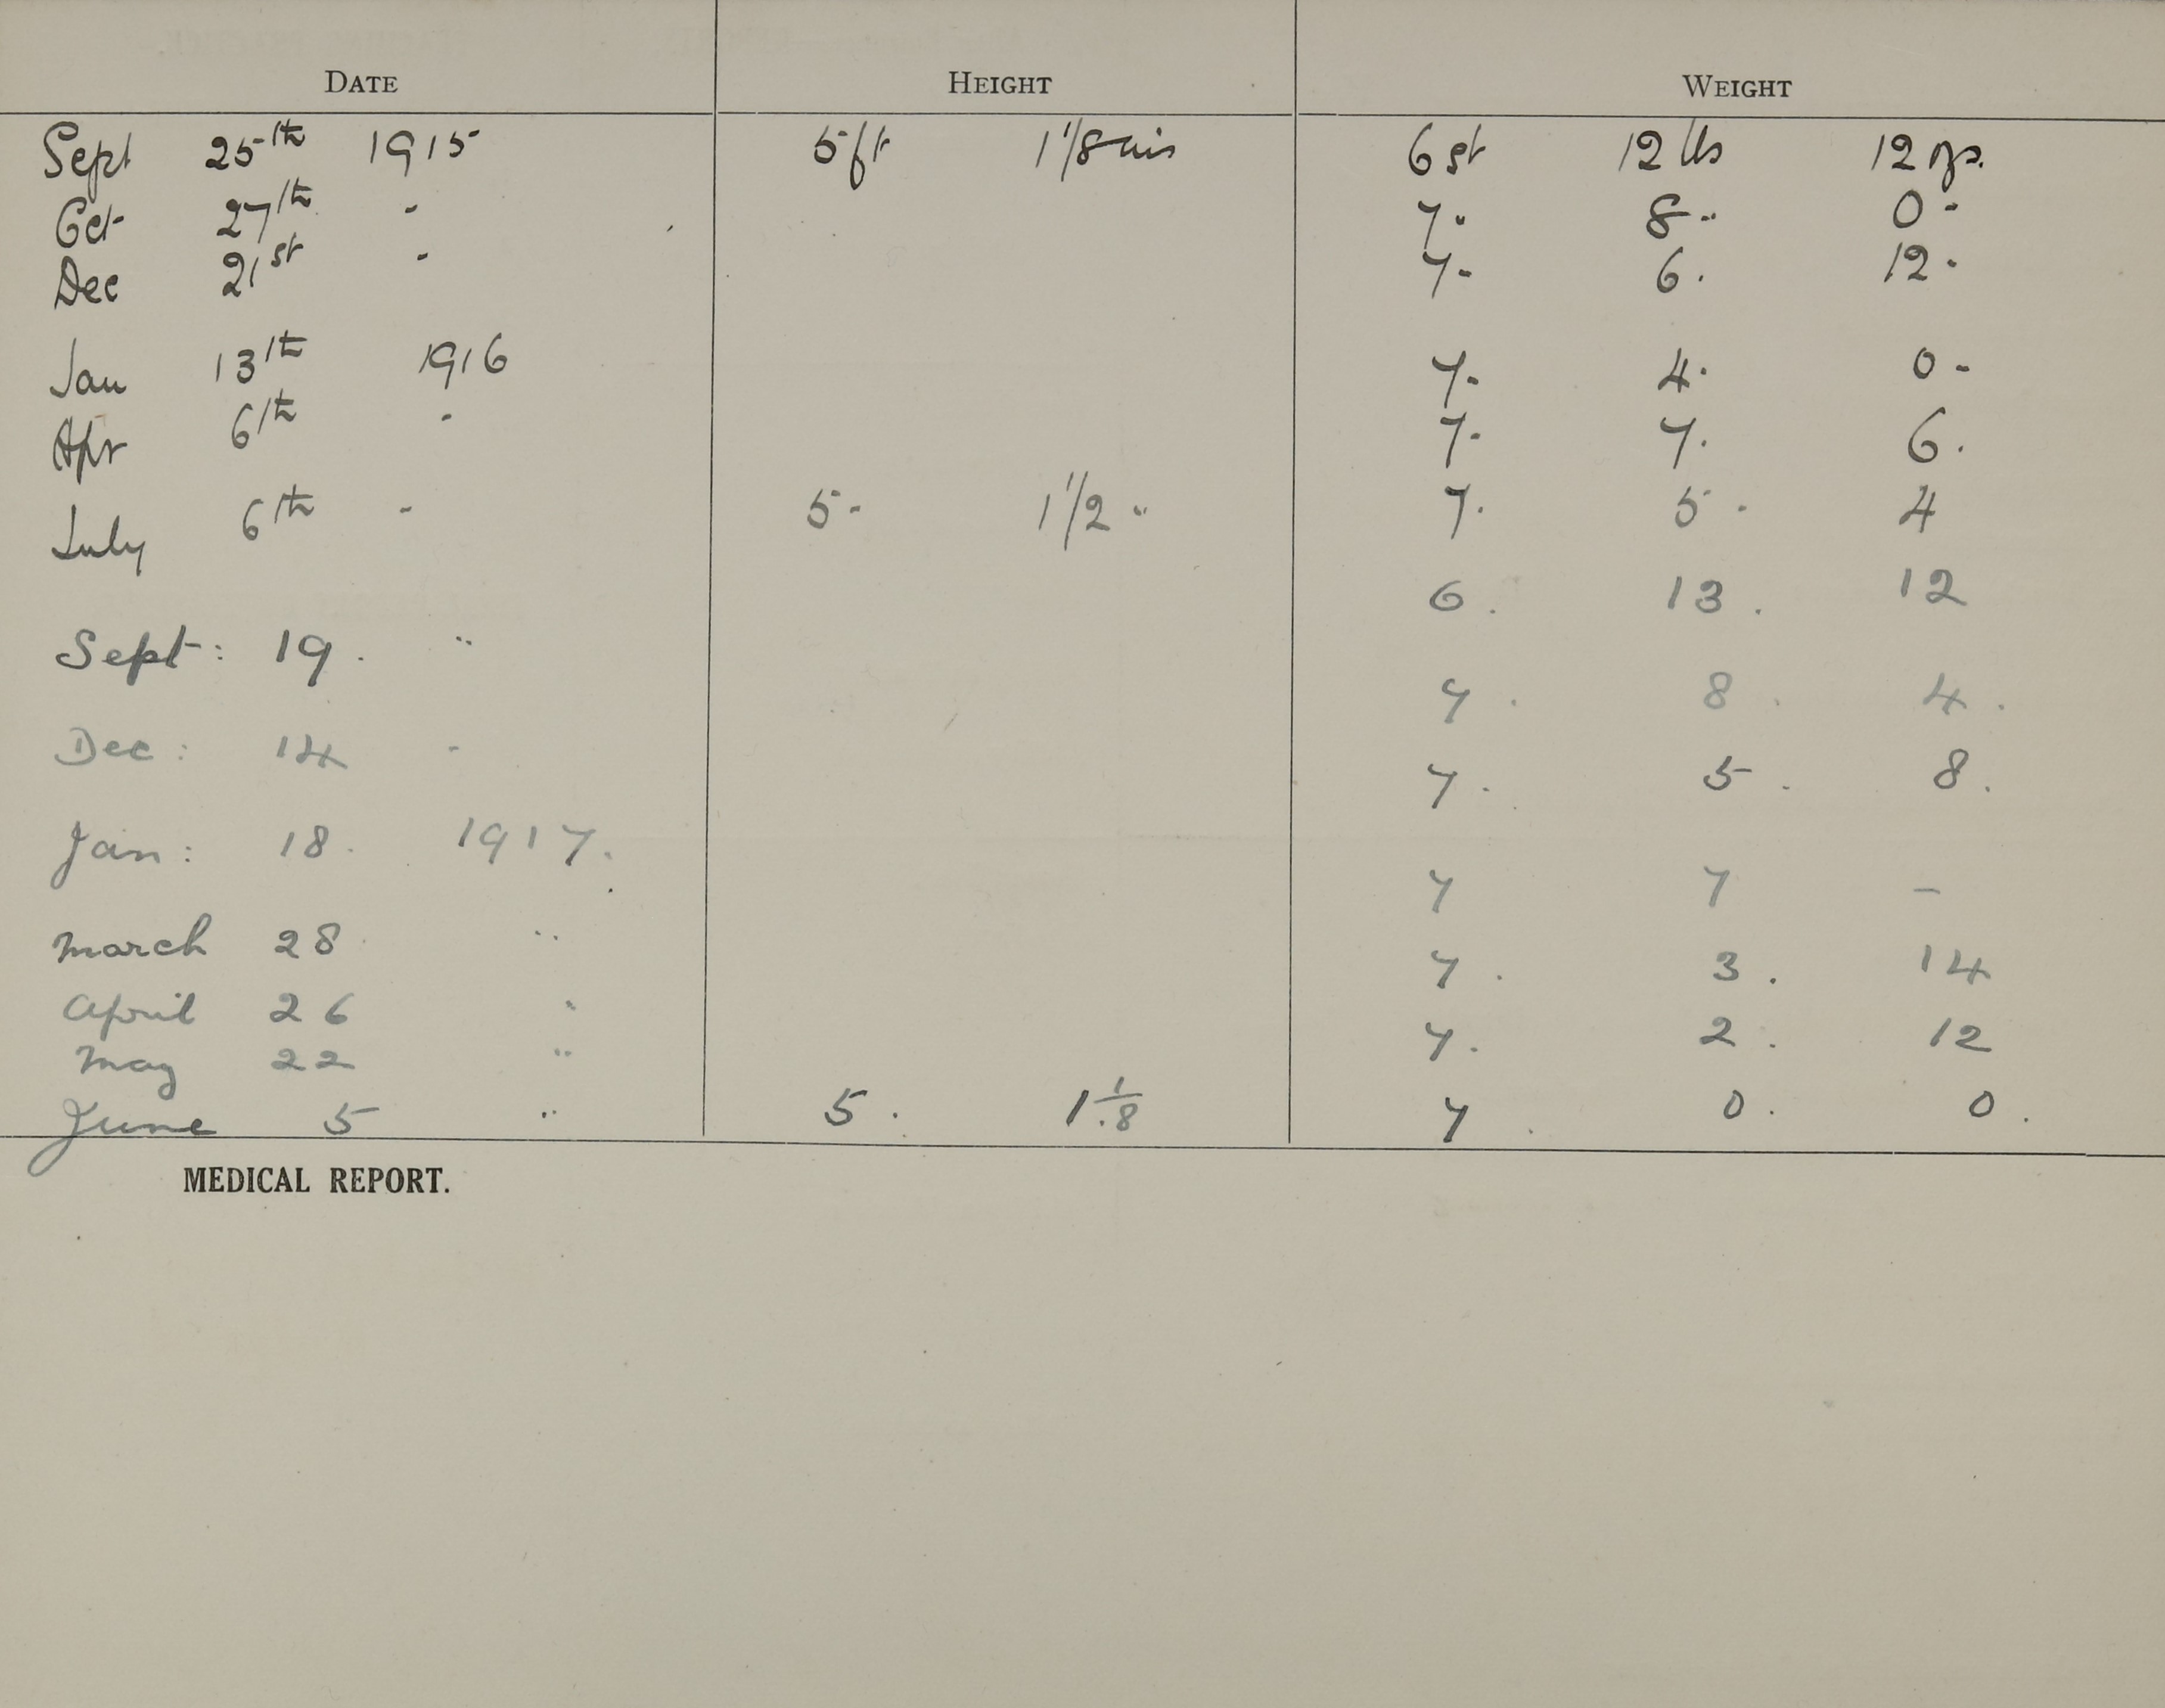 DATE HEIGHT WEIGHT
Sept 25th 1915 5ft 1 1/8 ins 6 st 12 lbs 12 ozs.
Oct 27th " 7 " 8 " 0 "
Dec 21st " 7 " 6 " 12 "
Jan 13th 1916 7 " 4 " 0 "
Apr 6th " 7 " 7 " 6 "
July 6th " 5 " 1 1/2 " 7 " 5 " 4
Sept: 19. " 6. 13. 12
Dec: 14 " 7. 8. 4.
Jan: 18. 1917. 7. 5. 8.
March 28 " 7 7 –
April 26 " 7. 3. 14
May 22 " 7. 2. 12
June 5 " 5. 1 1/8 7. 0. 0.
MEDICAL REPORT.